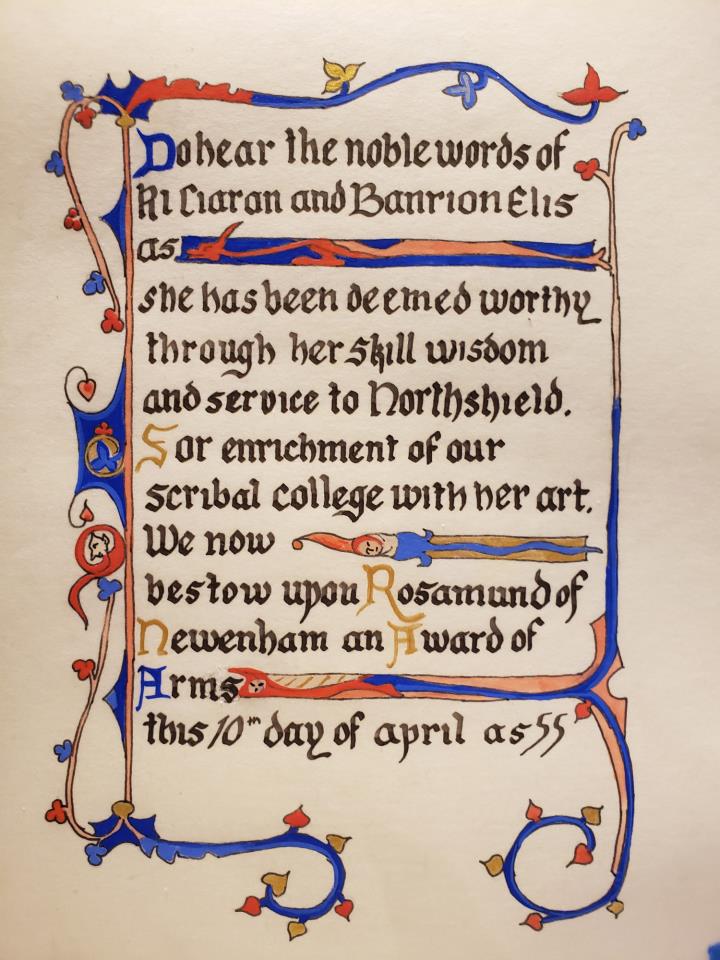 Do hear the noble words of
Ri Ciaran and Banrion Elis
as
she has been deemed worthy
through her skill wisdom
and service to Northshield.
For enrichment of our
scribal college with her art.
We now
bestow upon Rosamund of
Newenham an Award of
Arms
this 10th day of april as 55